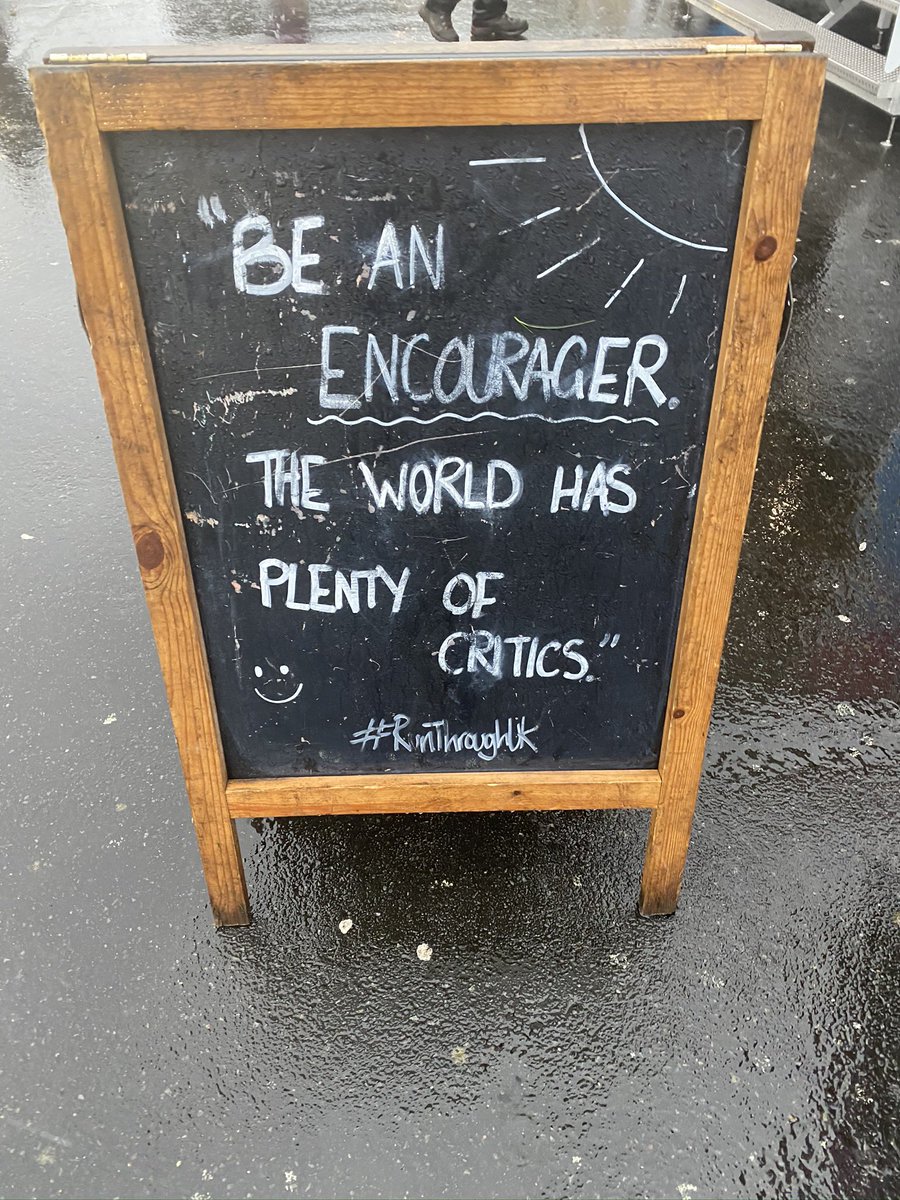 "BE AN
ENCOURAGER.
THE WORLD HAS
PLENTY OF
CRITICS."
#RunThroughUk